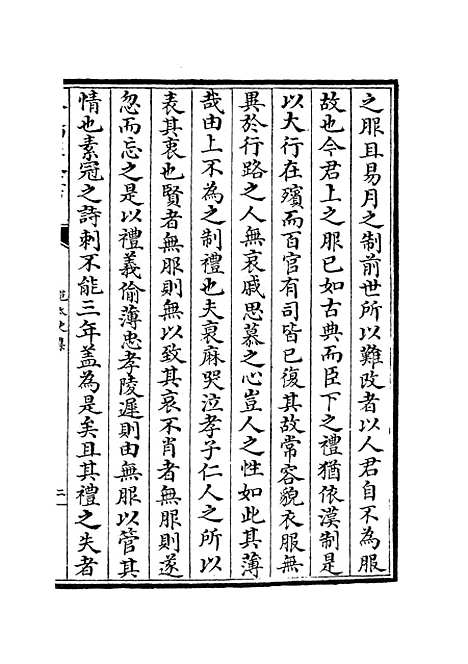 之服且易月之制前世所以難改者以人君自不為服
故也今君上之服已如古典而臣下之禮猶依漢制是
以大行在殯而百官有司皆已復其故常容貌衣服無
異於行路之人無哀戚思慕之心豈人之性如此其薄
哉由上不為之制禮也夫衰麻哭泣孝子仁人之所以
表其衷也賢者無服則無以致其哀不肖者無服則遂
忽而忘之是以禮義偷薄忠孝陵遲則由無服以管其
情也素冠之詩刺不能三年盖為是矣且其禮之失者
范太史集